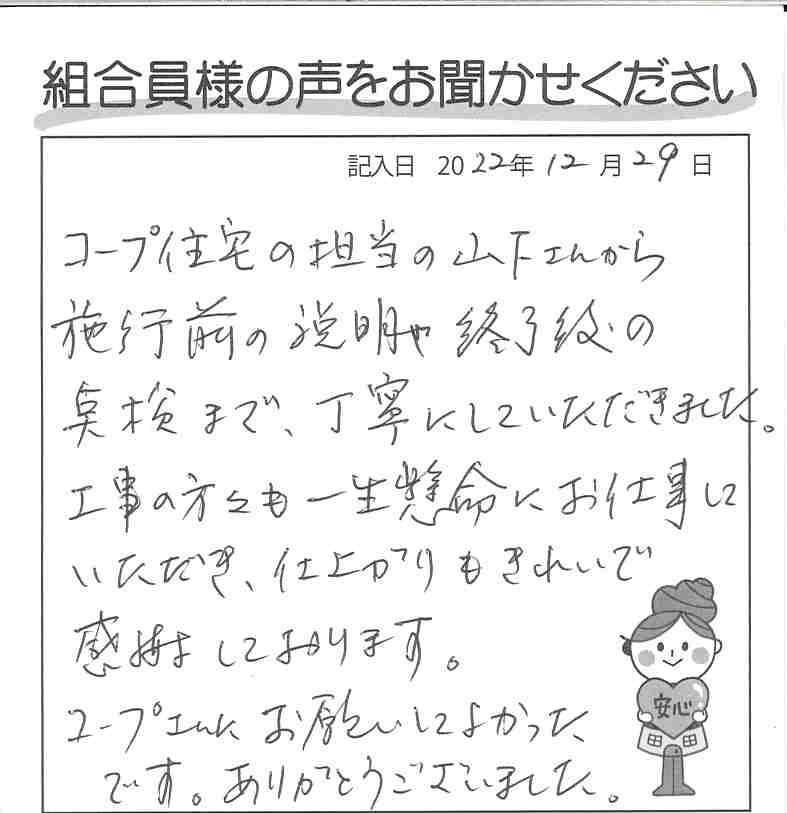 組合員様の声をお聞かせください
記入日 2022年12月29日
コープ住宅の担当の山下さんから
施行前の説明や終了後の
点検まで、丁寧にしていただきました。
工事の方々も一生懸命にお仕事して
いただき、仕上がりもきれいで
感謝しております。
安心
コープさんにお願いしてよかった
です。ありがとうございました。